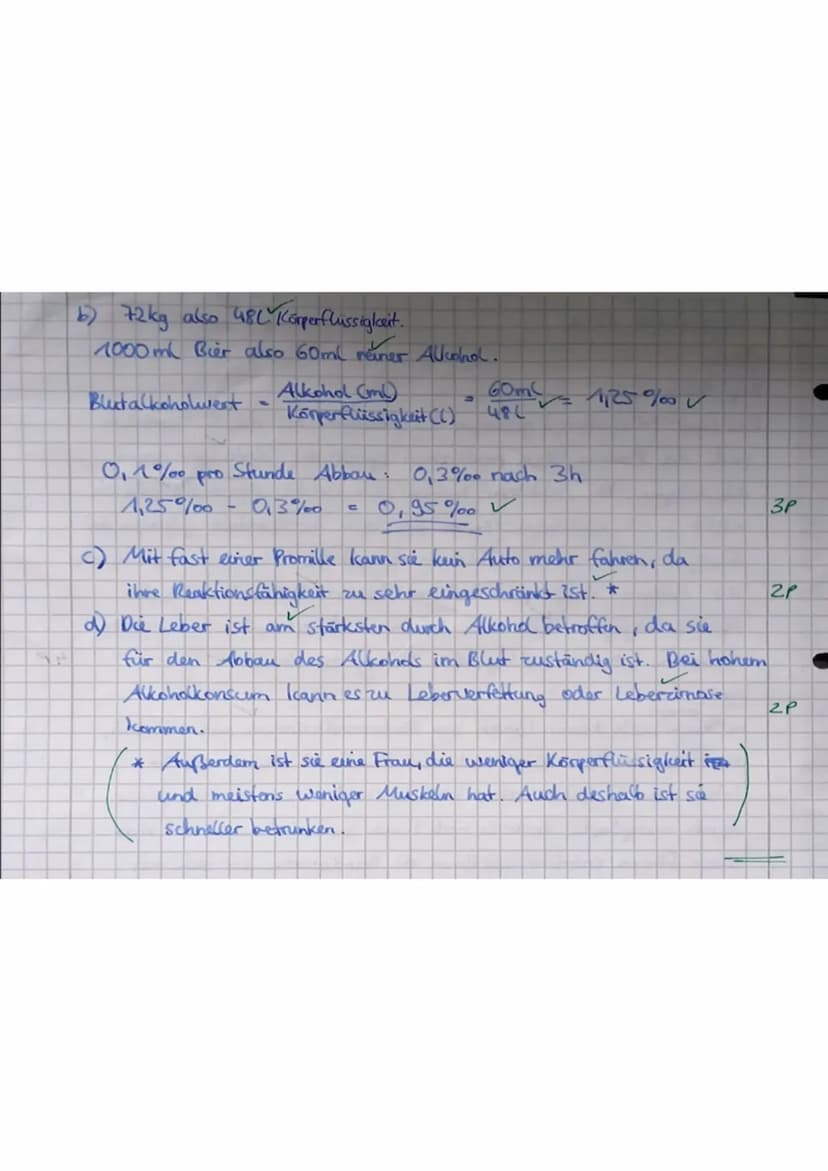 b) 72kg also 48L Körperflüssigkeit.
1000ml Bier also 60ml reiner Alkohol.
Blutalkoholwert = Alkohol (ml) / Körperflüssigkeit (l) = 60ml / 48L = 1,25‰
0,1‰ pro Stunde Abbau: 0,3‰ nach 3h
1,25‰ - 0,3‰ = 0,95‰ 3P
c) Mit fast einer Promille kann sie kein Auto mehr fahren, da
ihre Reaktionsfähigkeit zu sehr eingeschränkt ist. * 2P
d) Die Leber ist am stärksten durch Alkohol betroffen, da sie
für den Abbau des Alkohols im Blut zuständig ist. Bei hohem
Alkoholkonsum kann es zu Leberverfettung oder Leberzirrose
kommen. 2P
(* Außerdem ist sie eine Frau, die weniger Körperflüssigkeit
und meistens weniger Muskeln hat. Auch deshalb ist sie
schneller betrunken.)